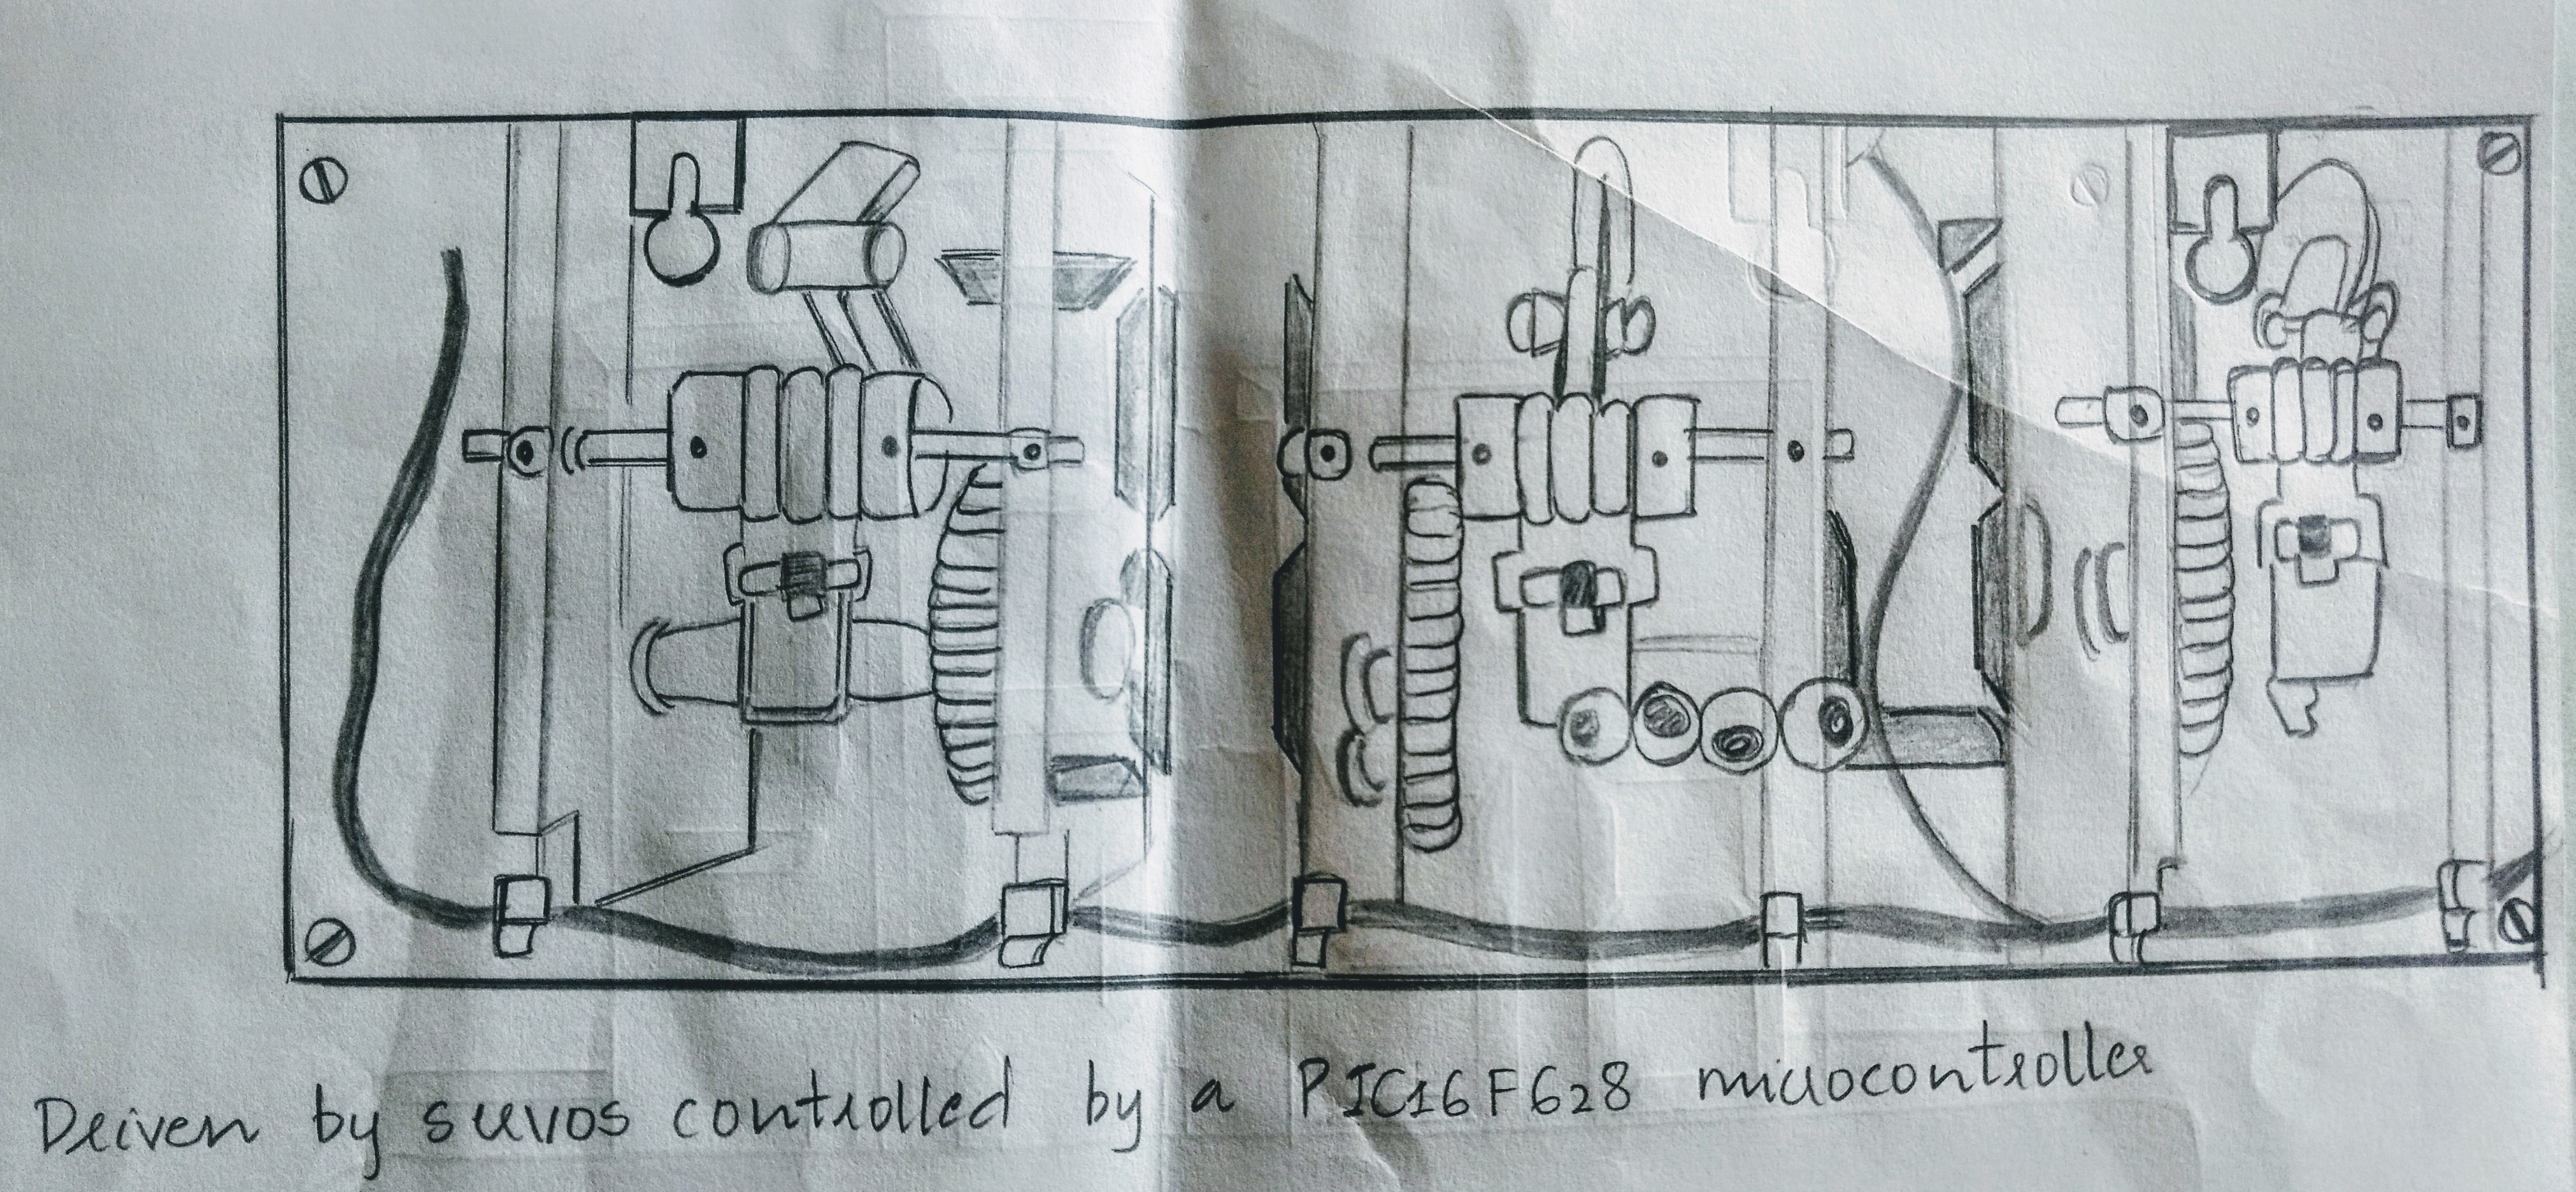 Driven by servos controlled by a PIC16F628 microcontroller